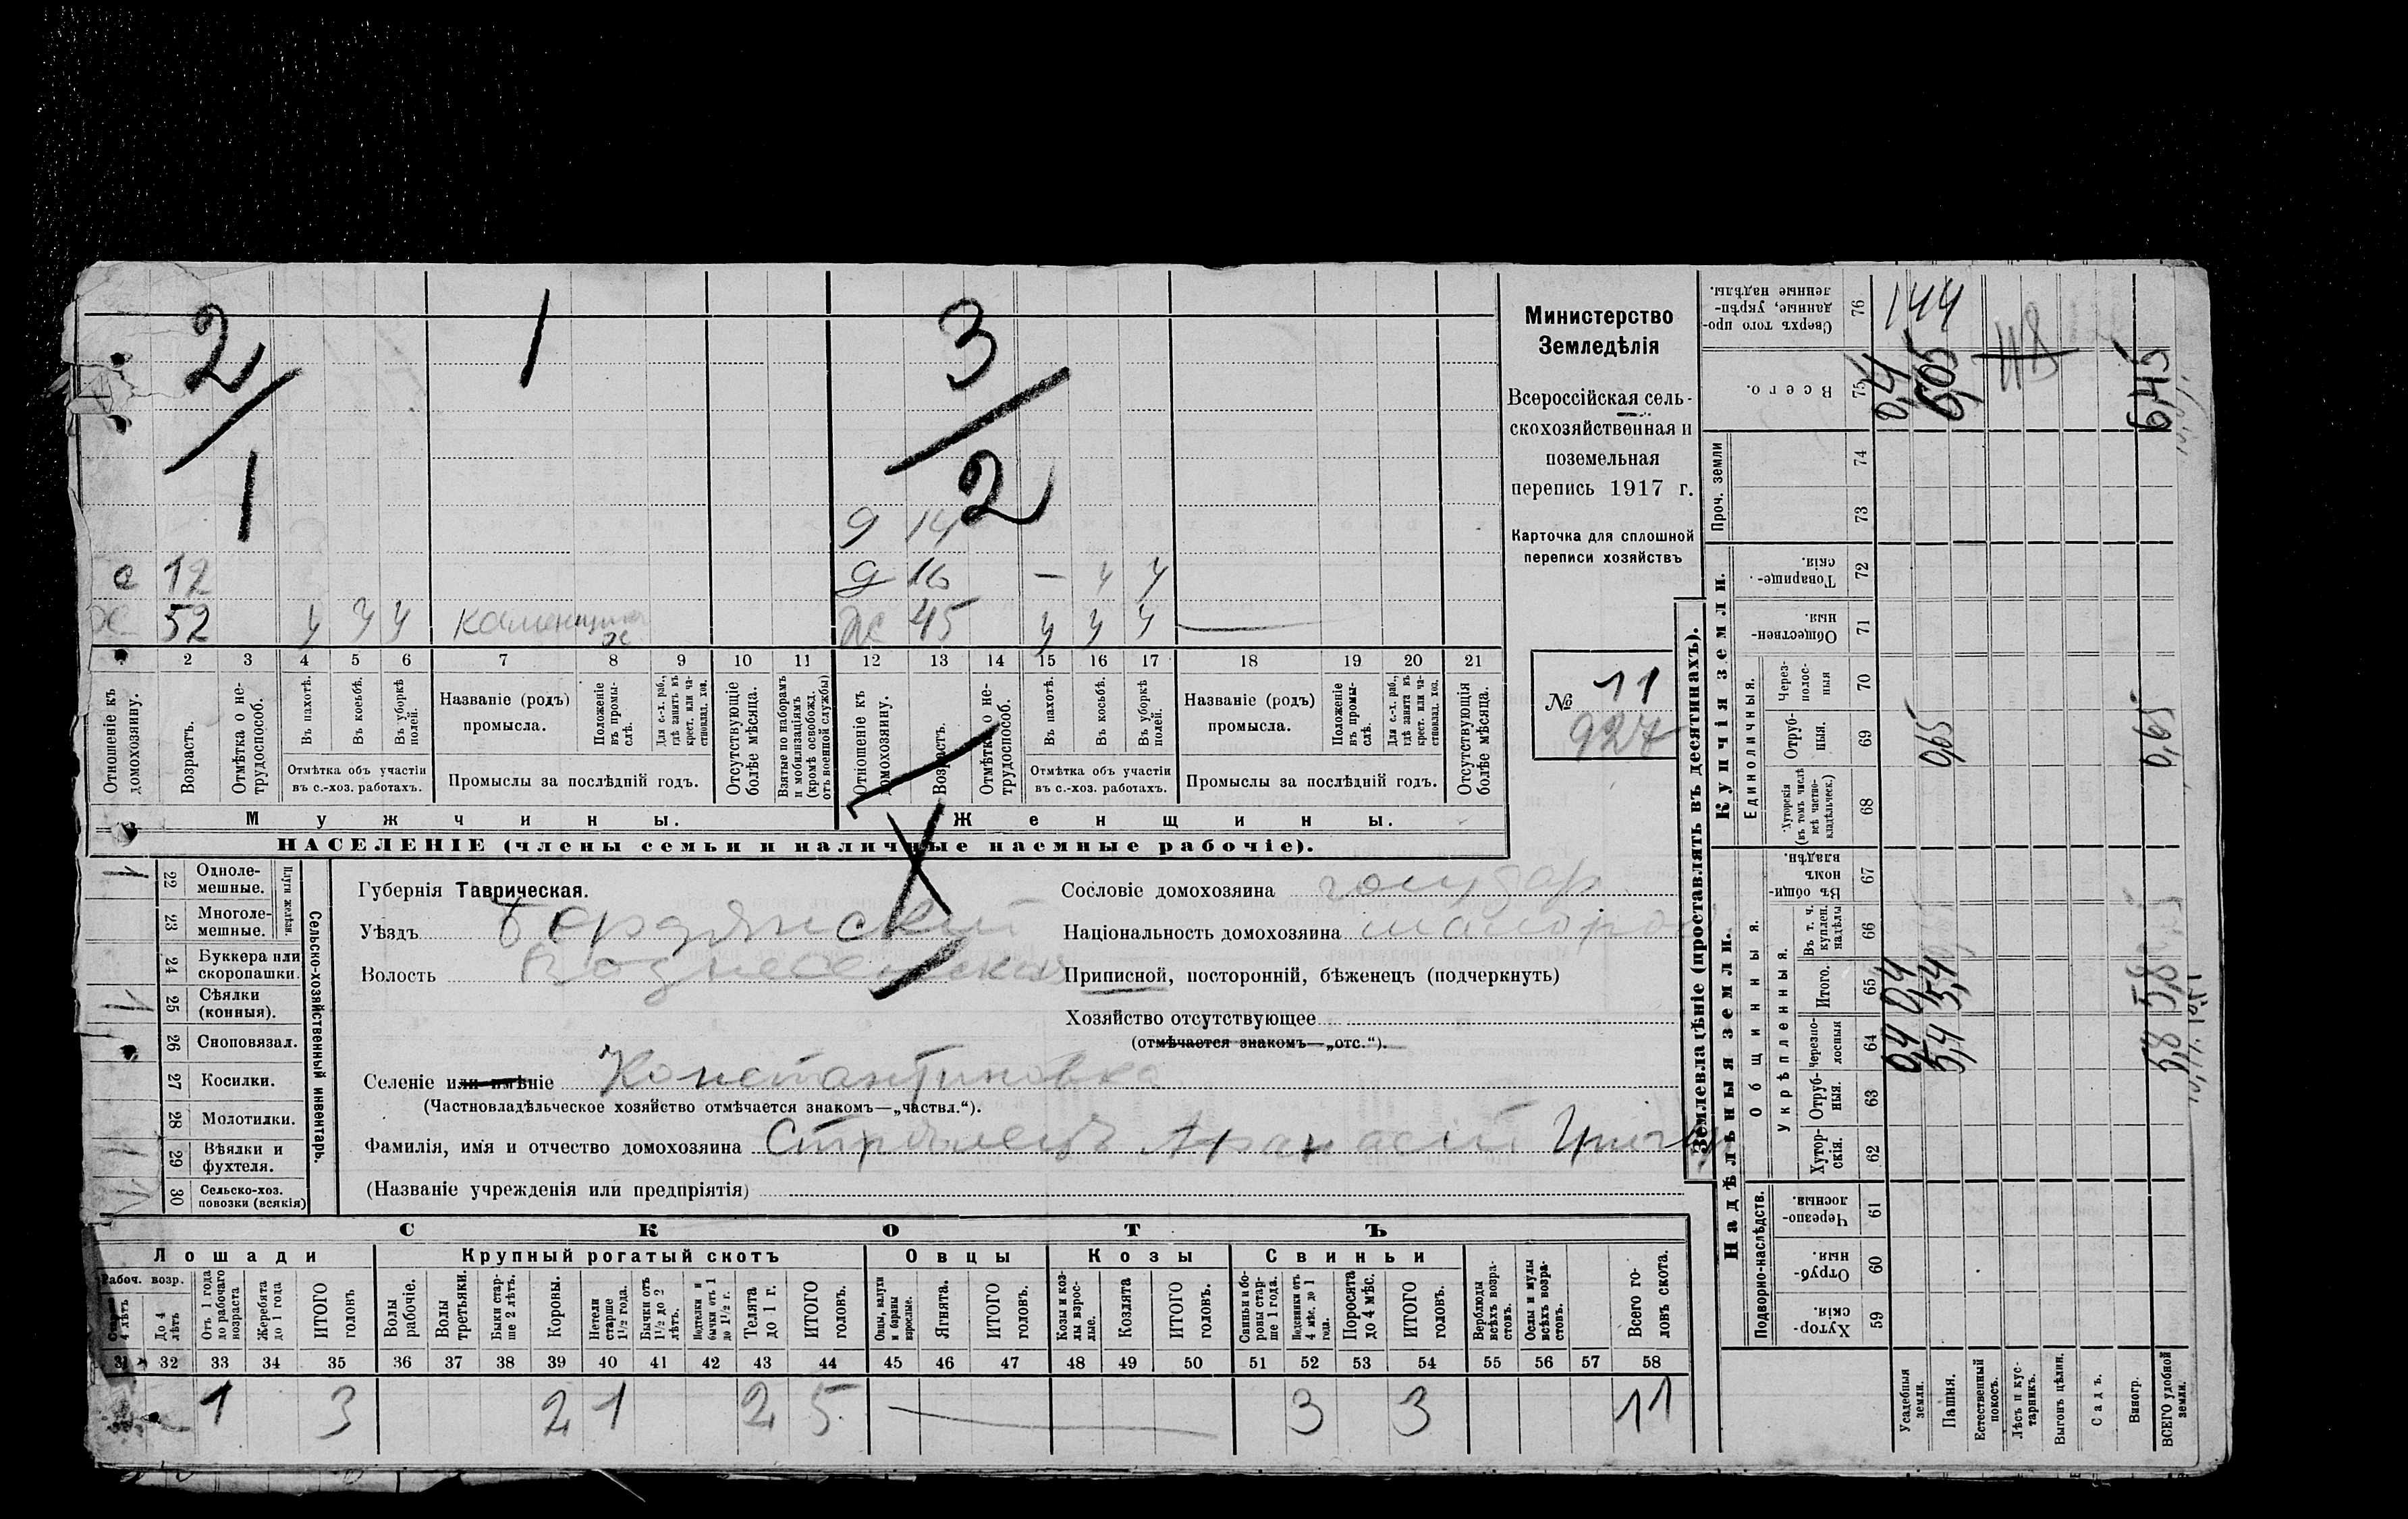 2 1 3
1 2
д 14
с 12 д 16 — у у
х 52 у у у каменщик х ж 45 у у у
2 3 4 5 6 7 8 9 10 11 12 13 14 15 16 17 18 19 20 21
Отношеніе къ домохозяину.
Возрастъ.
Отмѣтка о нетрудоспособ.
Въ пахотѣ.
Въ косьбѣ.
Въ уборкѣ полей.
Отмѣтка объ участіи въ с.-хоз. работахъ.
Названіе (родъ) промысла.
Положеніе въ промыслѣ.
Для с.-х. раб., гдѣ занятъ въ крест. или частновлад. хоз.
Промыслы за послѣдній годъ.
Отсутствующіе болѣе мѣсяца.
Взятые по наборамъ и мобилизаціямъ (кромѣ освобожд. отъ военной службы)
Отношеніе къ домохозяину.
Возрастъ.
Отмѣтка о нетрудоспособ.
Въ пахотѣ.
Въ косьбѣ.
Въ уборкѣ полей.
Отмѣтка объ участіи въ с.-хоз. работахъ.
Названіе (родъ) промысла.
Положеніе въ промыслѣ.
Для с.-х. раб., гдѣ занята въ крест. или частновлад. хоз.
Промыслы за послѣдній годъ.
Отсутствующія болѣе мѣсяца.
Мужчины. Женщины.
НАСЕЛЕНІЕ (члены семьи и наличные наемные рабочіе).
Министерство
Земледѣлія
Всероссійская сель-
скохозяйственная и
поземельная
перепись 1917 г.
Карточка для сплошной
переписи хозяйствъ
№ 11
927
1 22 Одноле-мешные.
23 Многоле-мешные.
Плуги желѣзн.
24 Буккера или скоропашки.
1 25 Сѣялки (конныя).
26 Сноповязал.
27 Косилки.
28 Молотилки.
1 29 Вѣялки и фухтеля.
30 Сельско-хоз. повозки (всякія)
Сельско-хозяйственный инвентарь.
Губернія Таврическая.
Уѣздъ Бердянский
Волость Вознесенская
Селеніе или имѣніе Константиновка
(Частновладѣльческое хозяйство отмѣчается знакомъ—„частвл.“).
Фамилія, имя и отчество домохозяина Стрѣлецъ Афанасий Григор
(Названіе учрежденія или предпріятія)
Сословіе домохозяина
Національность домохозяина малорос
Приписной, посторонній, бѣженецъ (подчеркнуть)
Хозяйство отсутствующее
(отмѣчается знакомъ—„отс.“).
СКОТЪ
Лошади Крупный рогатый скотъ Овцы Козы Свиньи
Рабоч. возр.
Старше 4 лѣтъ
До 4 лѣтъ
Отъ 1 года до рабочаго возраста
Жеребята до 1 года
ИТОГО головъ
Волы рабочіе.
Волы третьяки.
Быки старше 2 лѣтъ.
Коровы.
Нетели старше 1½ года.
Бычки отъ 1½ до 2 лѣтъ.
Подтелки и бычки отъ 1 до 1½ г.
Телята до 1 г.
ИТОГО головъ.
Овцы, валухи и бараны взрослые.
Ягнята.
ИТОГО головъ.
Козы и козлы взрослые.
Козлята
ИТОГО головъ.
Свиньи и боровы старше 1 года.
Подсвинки отъ 4 мѣс. до 1 года.
Поросята до 4 мѣс.
ИТОГО головъ.
Верблюды всѣхъ возрастовъ.
Ослы и мулы всѣхъ возрастовъ.
Всего головъ скота.
31 32 33 34 35 36 37 38 39 40 41 42 43 44 45 46 47 48 49 50 51 52 53 54 55 56 57 58
1 3 2 1 2 5 — 3 3 11
Землевладѣніе (проставлять въ десятинахъ).
Надѣльныя земли. Купчія земли.
Подворно-наслѣдств. Общинныя. Единоличныя. Проч. земли
Укрѣпленныя.
Хуторскія. 59
Отрубныя. 60
Черезполосныя. 61
Хуторскія. 62
Отрубныя. 63
Черезполосныя 64
Итого. 65
Въ т. ч. куплен. надѣлы 66
Въ общинномъ владѣн. 67
Хуторскія (въ томъ числѣ всѣ частновладѣльческ.) 68
Отрубныя. 69
Черезполосныя 70
Общественныя. 71
Товарищескія. 72
73
74
Всего. 75
Сверхъ того проданные, укрѣпленные надѣлы. 76
Усадебныя земли. 0,4 0,4 0,4 144
Пашня. 5,4 5,4 0,65 6,05
Естественный покосъ.
Лѣсъ и кустарникъ.
Выгонъ цѣлин.
Садъ.
Виногр.
ВСЕГО удобной земли. 5,8 5,8 0,65 6,45